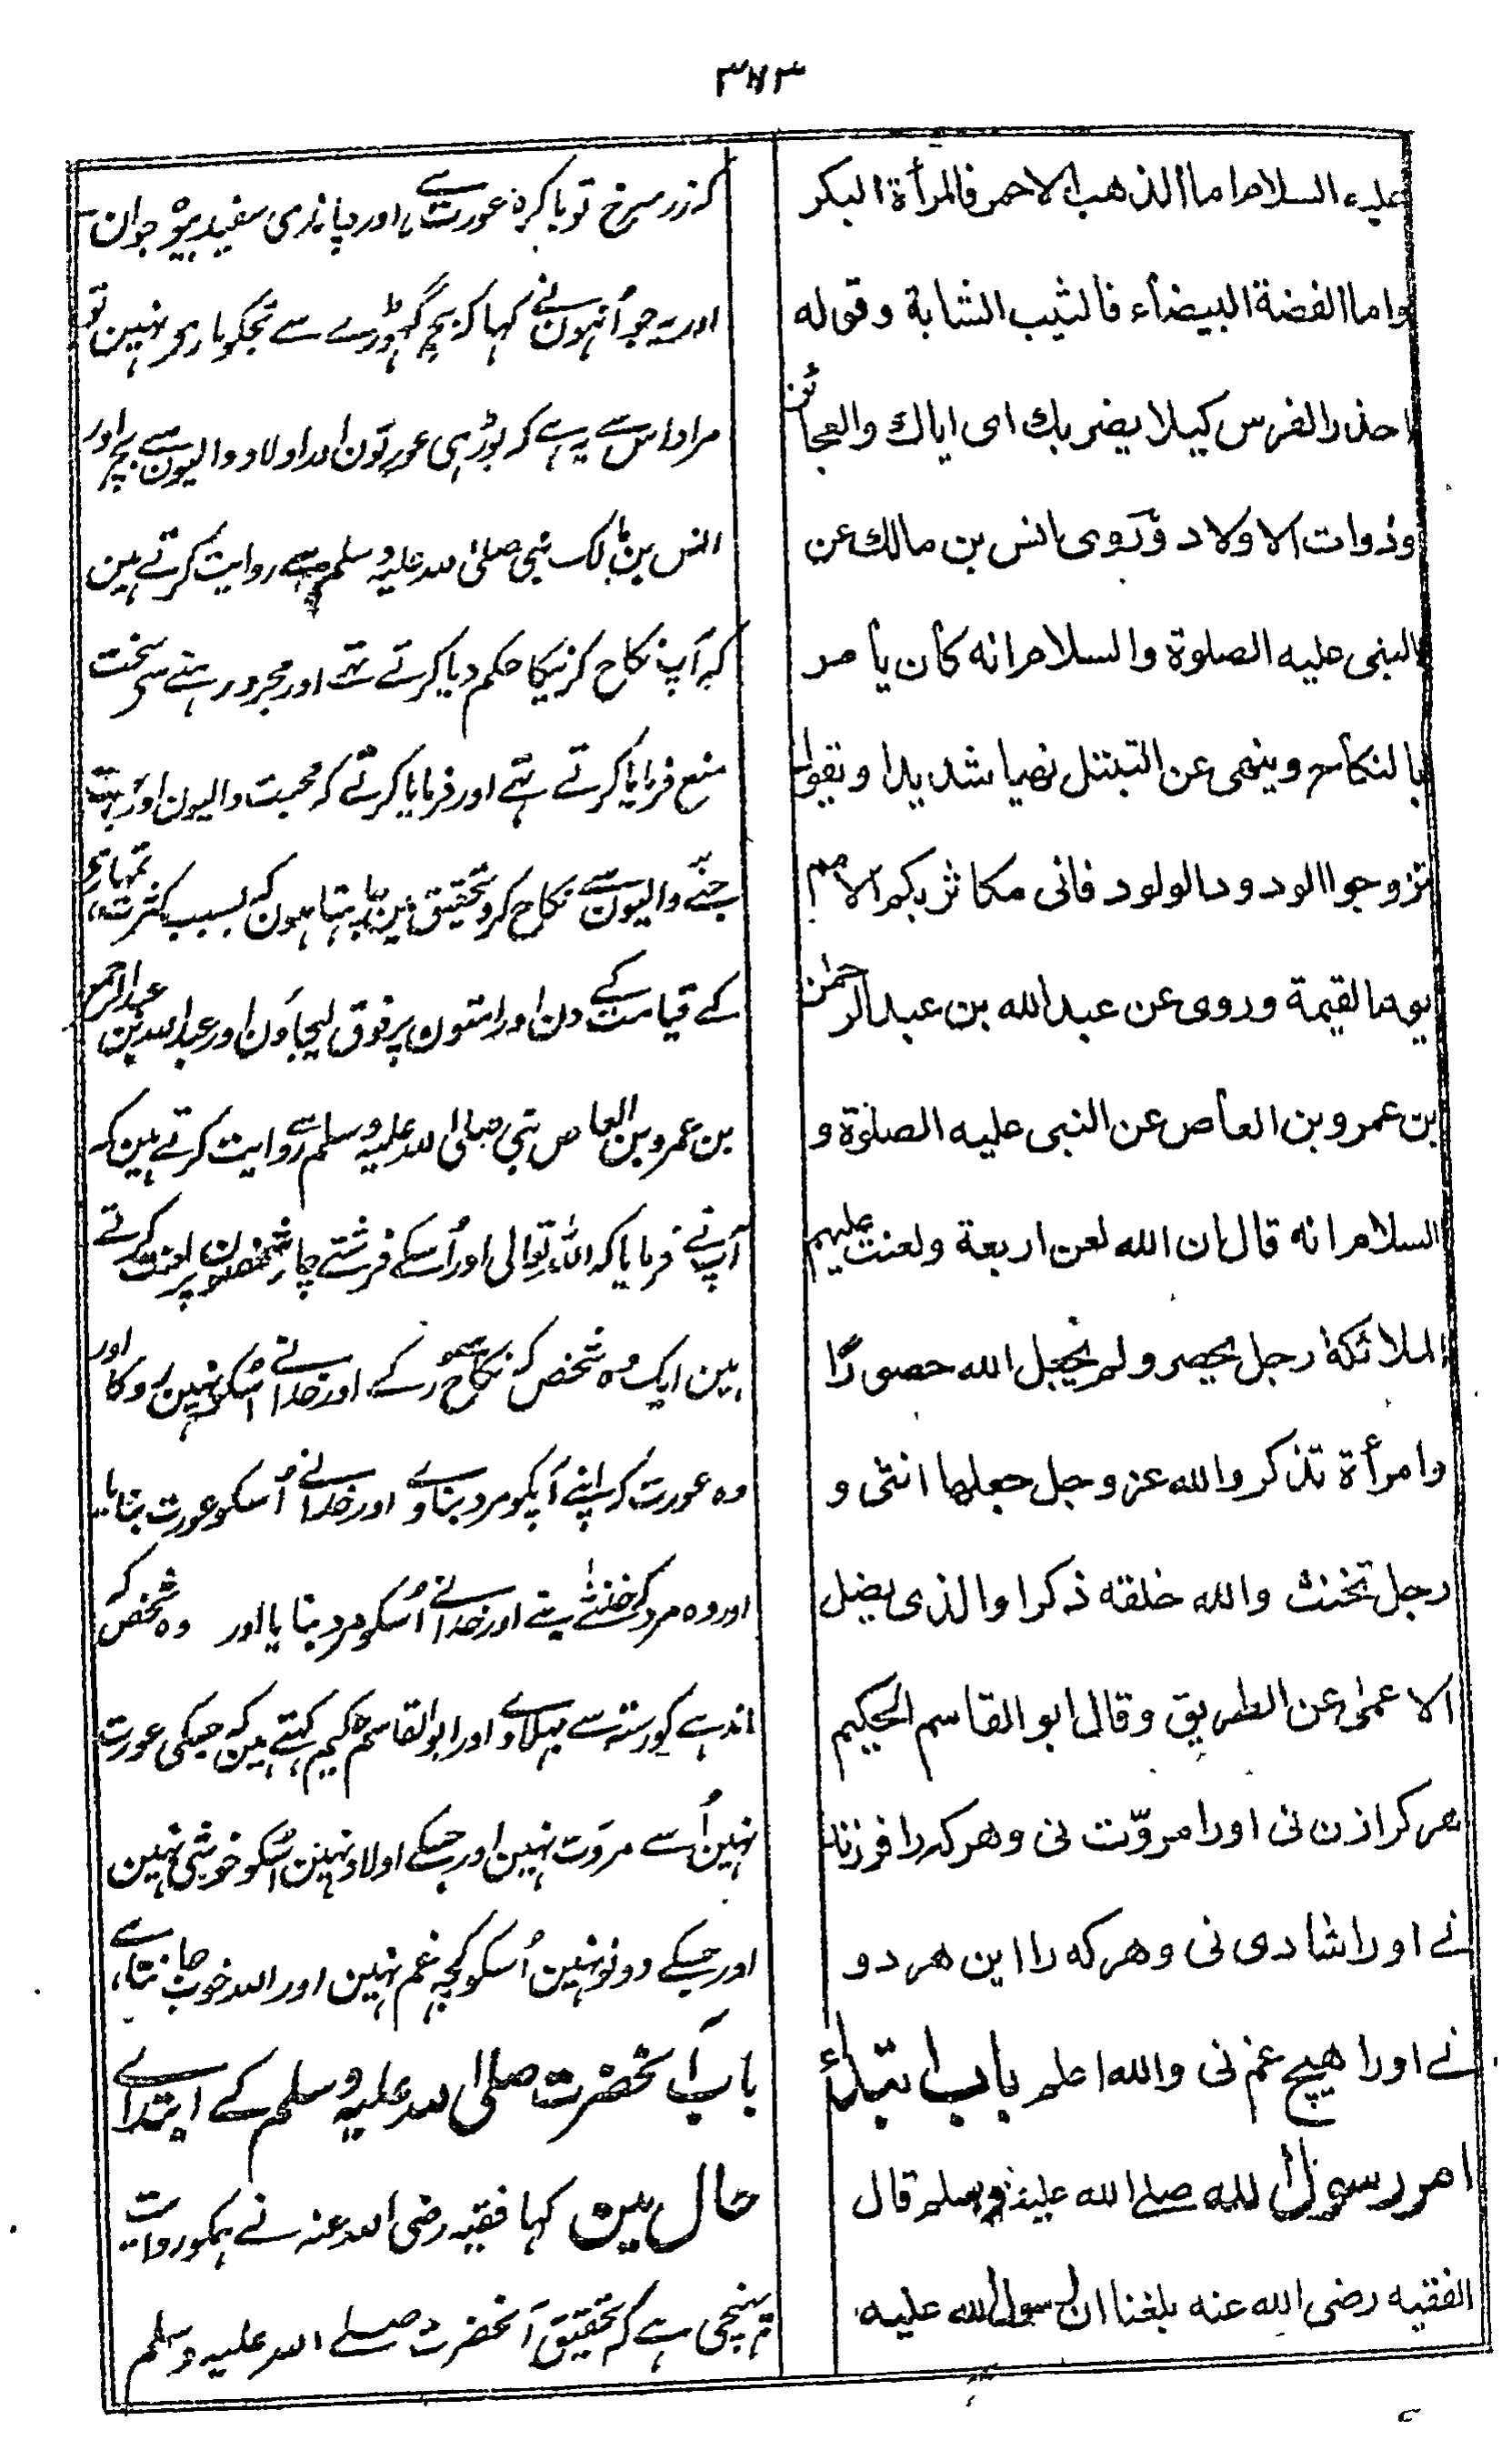 ۳۷۳
عليه السلام اما الذهب الاحمر فالمرأة البكر
واما الفضة البيضاء فالثيب الشابة وقوله
احذر الفرس كيلا يضربك اى اياك والعجائن
وذوات الاولاد وروى انس بن مالك عن
النبى عليه الصلوة والسلام انه كان يأمر
بالنكاح وينهى عن التبتل نهيا شديدا ويقول
تزوجوا الودود الولود فانى مكاثر بكم الامم
يوم القيمة وروى عن عبد الله بن عبد الرحمٰن
بن عمرو بن العاص عن النبى عليه الصلوة و
السلام انه قال ان الله لعن اربعة ولعنت عليهم
الملائكة رجل يحصر ولم يجعل الله حصورًا
وامرأة تذكر والله عز وجل جعلها انثى و
رجل تخنث والله خلقه ذكرا والذى يضل
الاعمٰى عن الطريق وقال ابو القاسم الحكيم
هر كرا زن نى اورا مروّت نى وهر كه را فرزند
نے اورا شادى نى وهر كه را اين هر دو
نے اورا هيچ غم نى والله اعلم باب ابتداء
امر رسول الله صلے الله عليه وسلم قال
الفقيه رضى الله عنه بلغنا ان رسول الله عليه
کہ زر سرخ تو باکرہ عورت ہے اور چاندی سفید بیوہ جوان
اور یہ جو اُنہوں نے کہا کہ بچ گہوڑے سے تجکو مار بہر نہین تو
مراد اس سے یہ ہے کہ بوڑہی عورتون اور اولاد والیون سے بچ اور
انس بن مالک نبی صلی اللہ علیہ وسلم سے روایت کرتے ہین
کہ آپ نکاح کرنیکا حکم دیا کرتے تہے اور مجرد رہنے سے سخت
منع فرمایا کرتے تہے اور فرمایا کرتے کہ محبت والیون اور بہت
جننے والیون سے نکاح کرو تحقیق مین چاہتا ہون کہ بسبب کثرت تمہاری
کے قیامت کے دن اور امتون پر فوق لیجاؤن اور عبد اللہ بن عبد الرحمٰن
بن عمرو بن العاص نبی صلی اللہ علیہ وسلم سے روایت کرتے ہین کہ
آپ نے فرمایا کہ اللہ تعالی اور اُسکے فرشتے چار شخصون پر لعنت کرتے
ہین ایک وہ شخص کہ نکاح سے رکے اور خدا نے اُسکو نہین روکا اور
وہ عورت کہ اپنے آپکو مرد بناوے اور خدا نے اُسکو عورت بنایا
اور وہ مرد کہ خنثے بنے اور خدا نے اُسکو مرد بنایا اور وہ شخص کہ
اندہے کو رستہ سے بہلاوے اور ابو القاسم حکیم کہتے ہین کہ جسکی عورت
نہین اُسے مروّت نہین اور جسکے اولاد نہین اُسکو خوشی نہین
اور جسکے دونو نہین اُسکو کچہ غم نہین اور اللہ خوب جانتا ہے
باب آنحضرت صلی اللہ علیہ وسلم کے ابتداے
حال مین کہا فقیہ رضی اللہ عنہ نے ہمکو روایت
پہنچی ہے کہ تحقیق آنحضرت صلے اللہ علیہ وسلم